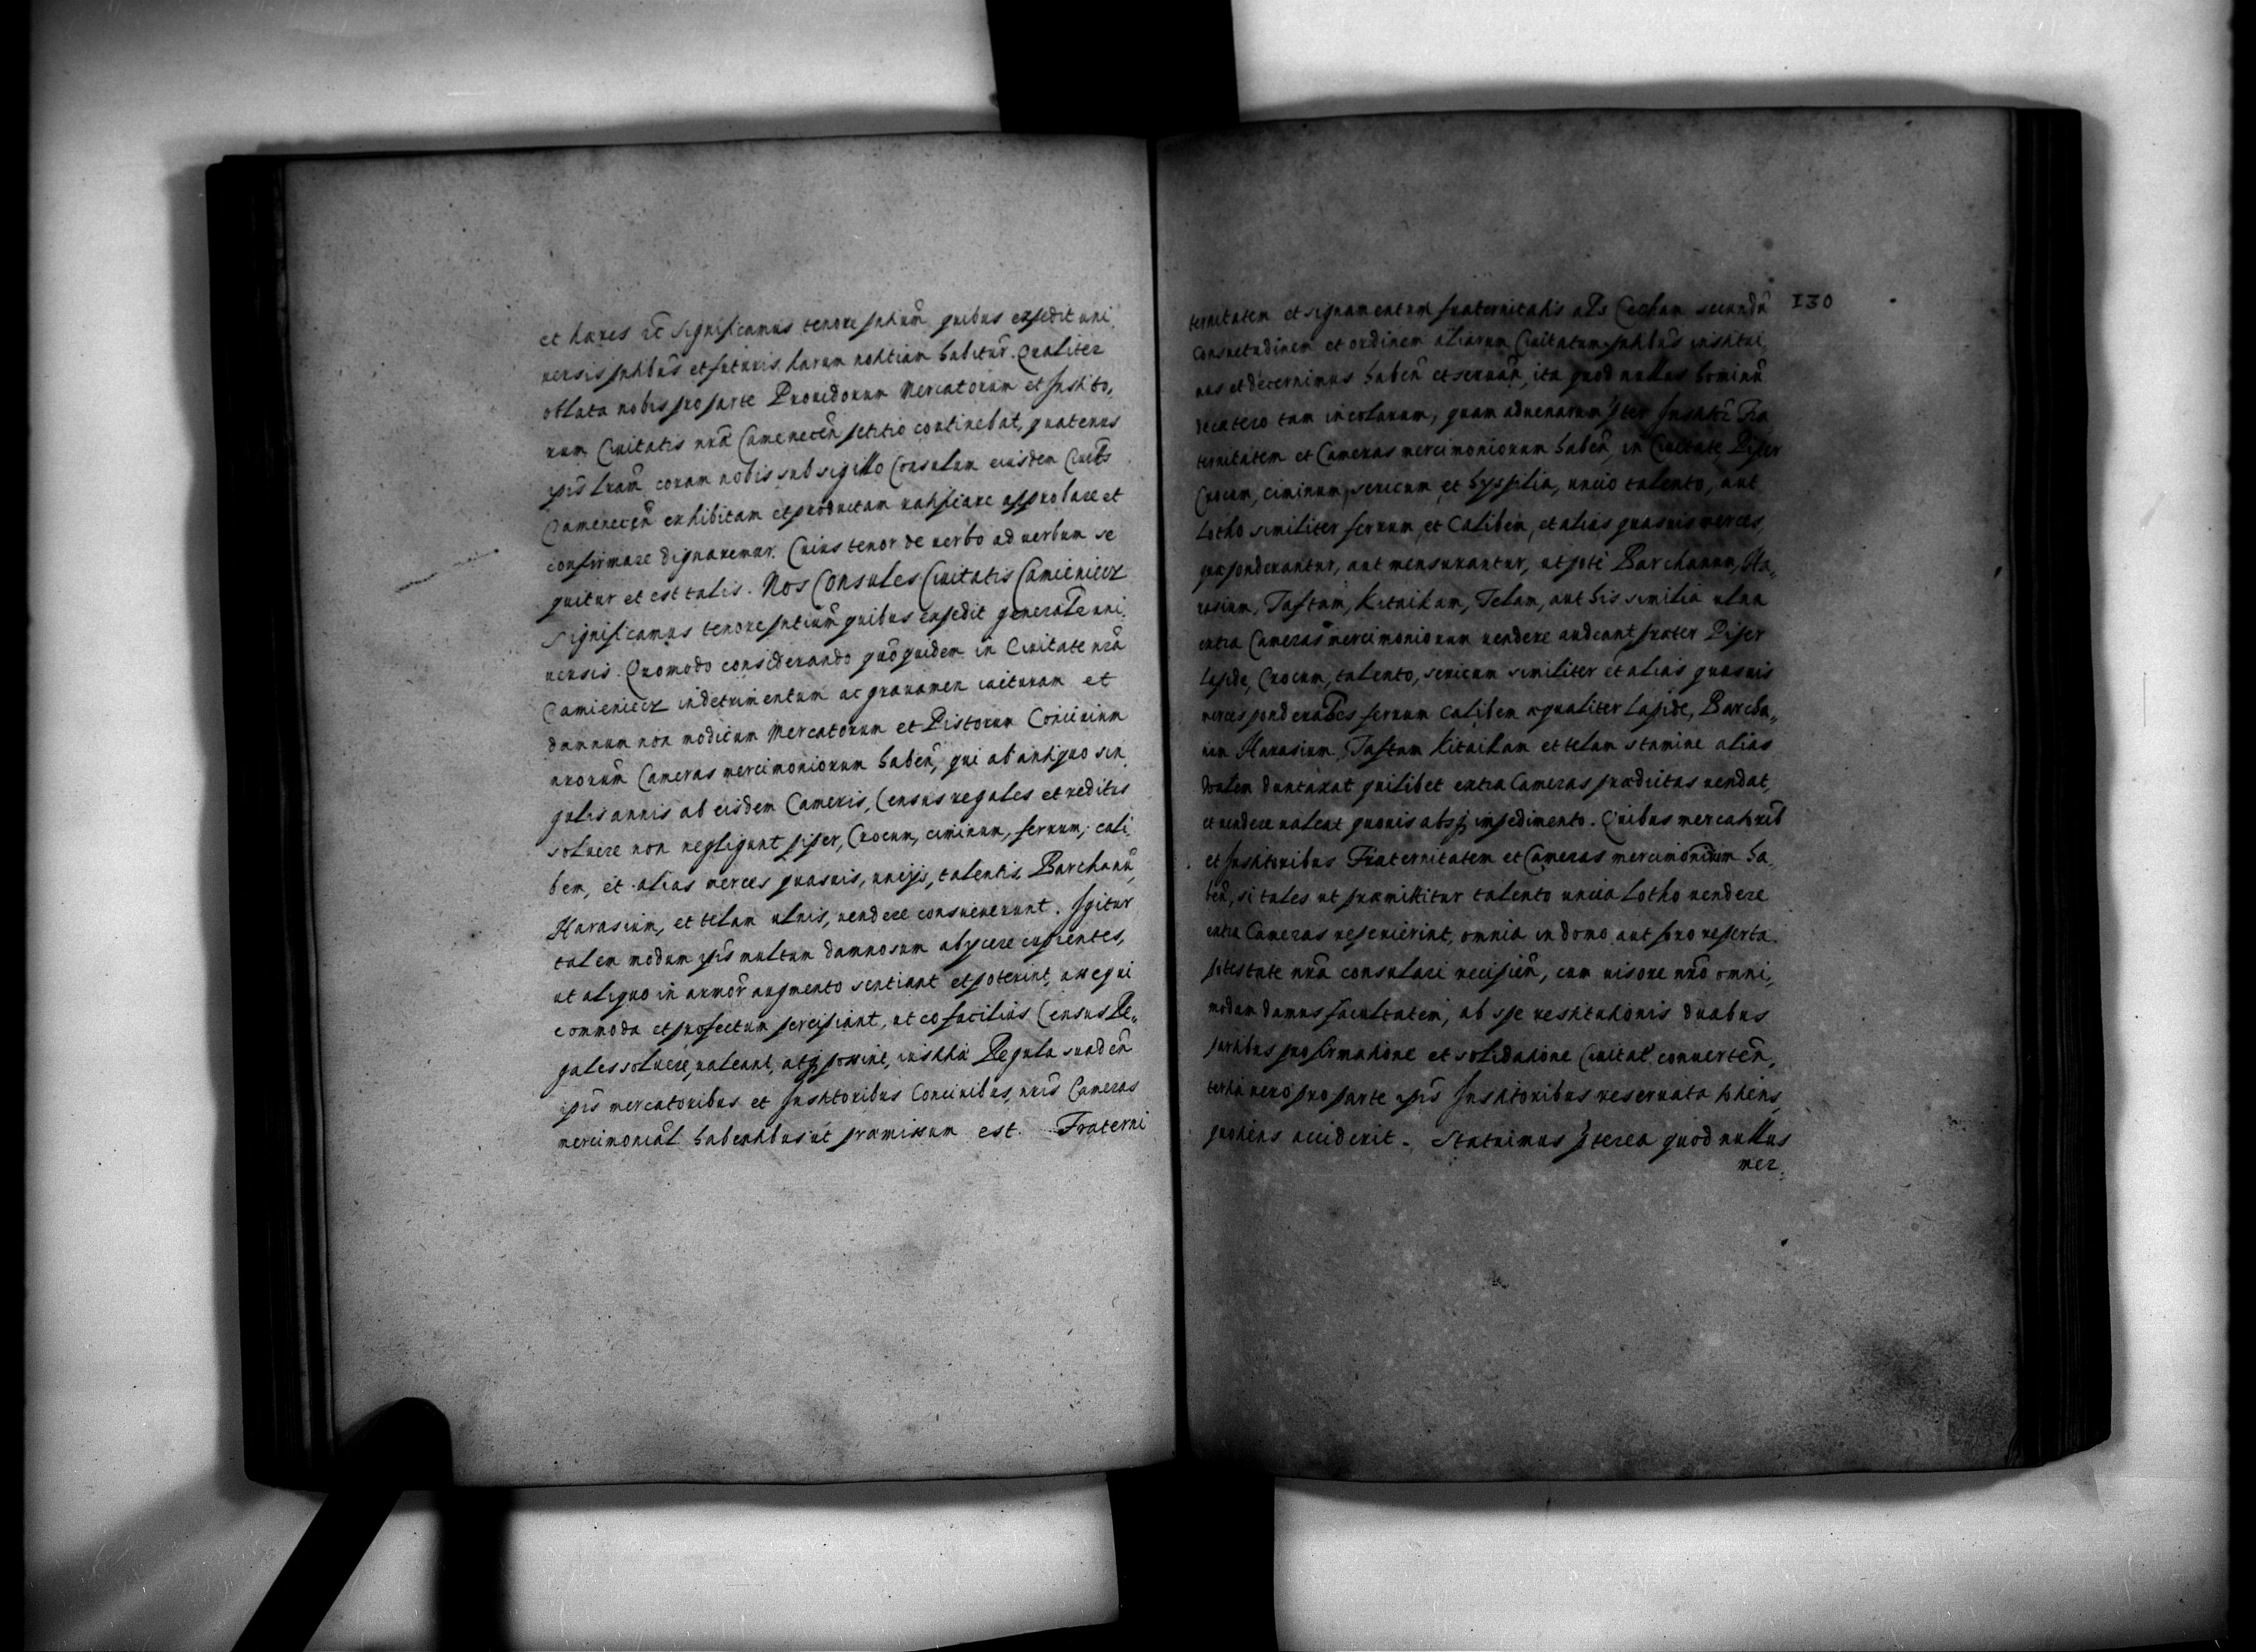 et hæres etc̃ significamus tenore pñtium quibus expedit uni„
uersis pñtibus et futuris harum notitiam habitur̃. Qualiter
oblata nobis pro parte Prouidorum Mercatorum et Instito„
rum Ciuitatis nr̃æ Camenecen̄ petitio continebat, quatenus
ip̃is lr̃am coram nobis sub sigillo Consulum eiusdem Ciuit̃s
Camenecen̄ exhibitam et productam ratificare approbare et
confirmare dignaremur. Cuius tenor de uerbo ad uerbum se
quitur et est talis. Nos Consules Ciuitatis Camieniecz
Significamus tenore pñtium quibus expedit generale uni„
uersis. Quomodo considerando quõ quidem in Ciuitate nr̃a
Camieniecz in detrimentum ac grauamen
damnum non modicum Mercatorum et Pistorum Conciuium
nr̃orum Cameras mercimoniorum haben̄, qui ab antiquo sin„
gulis annis ab eisdem Cameris, Census regales et reditus
soluere non negligunt piper, Crocum, ciminum, ferrum, cali„
bem, et alias merces quasuis, uncijs, talentis, Barchanũ,
Harasium, et telam ulnis, uendere consueuerunt. Igitur
talem modum ip̃is multum damnosum abijcere cupientes,
ut aliquo in armor̃ augmento sentiant et poterint, assequi
commoda et profectum percipiant, ut eo facilius Census Re„
gales soluere, ualeant, atq; possint, iustitia Regula suaden̄
ip̃is mercatoribus et Institoribus Conciuibus, nr̃is Cameras
mercimonial̃ habentibus ut præmissum est. Fraterni
130
ternitatem et signamentum fraternitatis al̃s Cecham secundũ
Consuetudinem et ordinem aliarum Ciuitatum pñtibus institui„
mus et decernimus haben̄ et seruan̄, ita quod nullus hominũ
decætero tam incolarum, quam aduenarum p̃ter Institor̃ Fra
ternitatem et Cameras mercimoniorum haben̄, in Ciuitate Piper
Crocum, ciminum, sericum et byssilia, uncio talento, aut
Lotho similiter ferrum, et Calibem, et alias quasuis merces,
quæ ponderantur, aut mensurantur, utpote Barchanum, Ha„
rasium, Taftam, Kitaikam, Telam, aut his similia ulna
extra Cameras mercimoniorum uendere audeant præter Piper
lapide, Crocum, talento, sericum similiter et alias quasuis
merces ponderabl̃es ferrum calibem æqualiter lapide, Barcha„
num Harasium Taftam Kitaikam et telam stamine alias
duntaxat quilibet extra Cameras prædictas uendat,
et uendere ualeat quouis absq; impedimento. Quibus mercatorib̃
et Institoribus Fraternitatem et Cameras mercimonium ha„
ben̄, si tales ut præmittitur talento uncia Lotho uendere
extra Cameras repererint, omnia in domo aut foro reperta
potestate nr̃a consulari recipien̄, cum uisore nr̃o omni„
modam damus facultatem, ab spe restitutionis duabus
partibus pro firmatione et solidatione Ciuitat̃ conuerten̄,
tertia uero pro parte ip̃is Institoribus reseruata totiens
quotiens acciderit. Statuimus p̃terea quod nullus
mer„